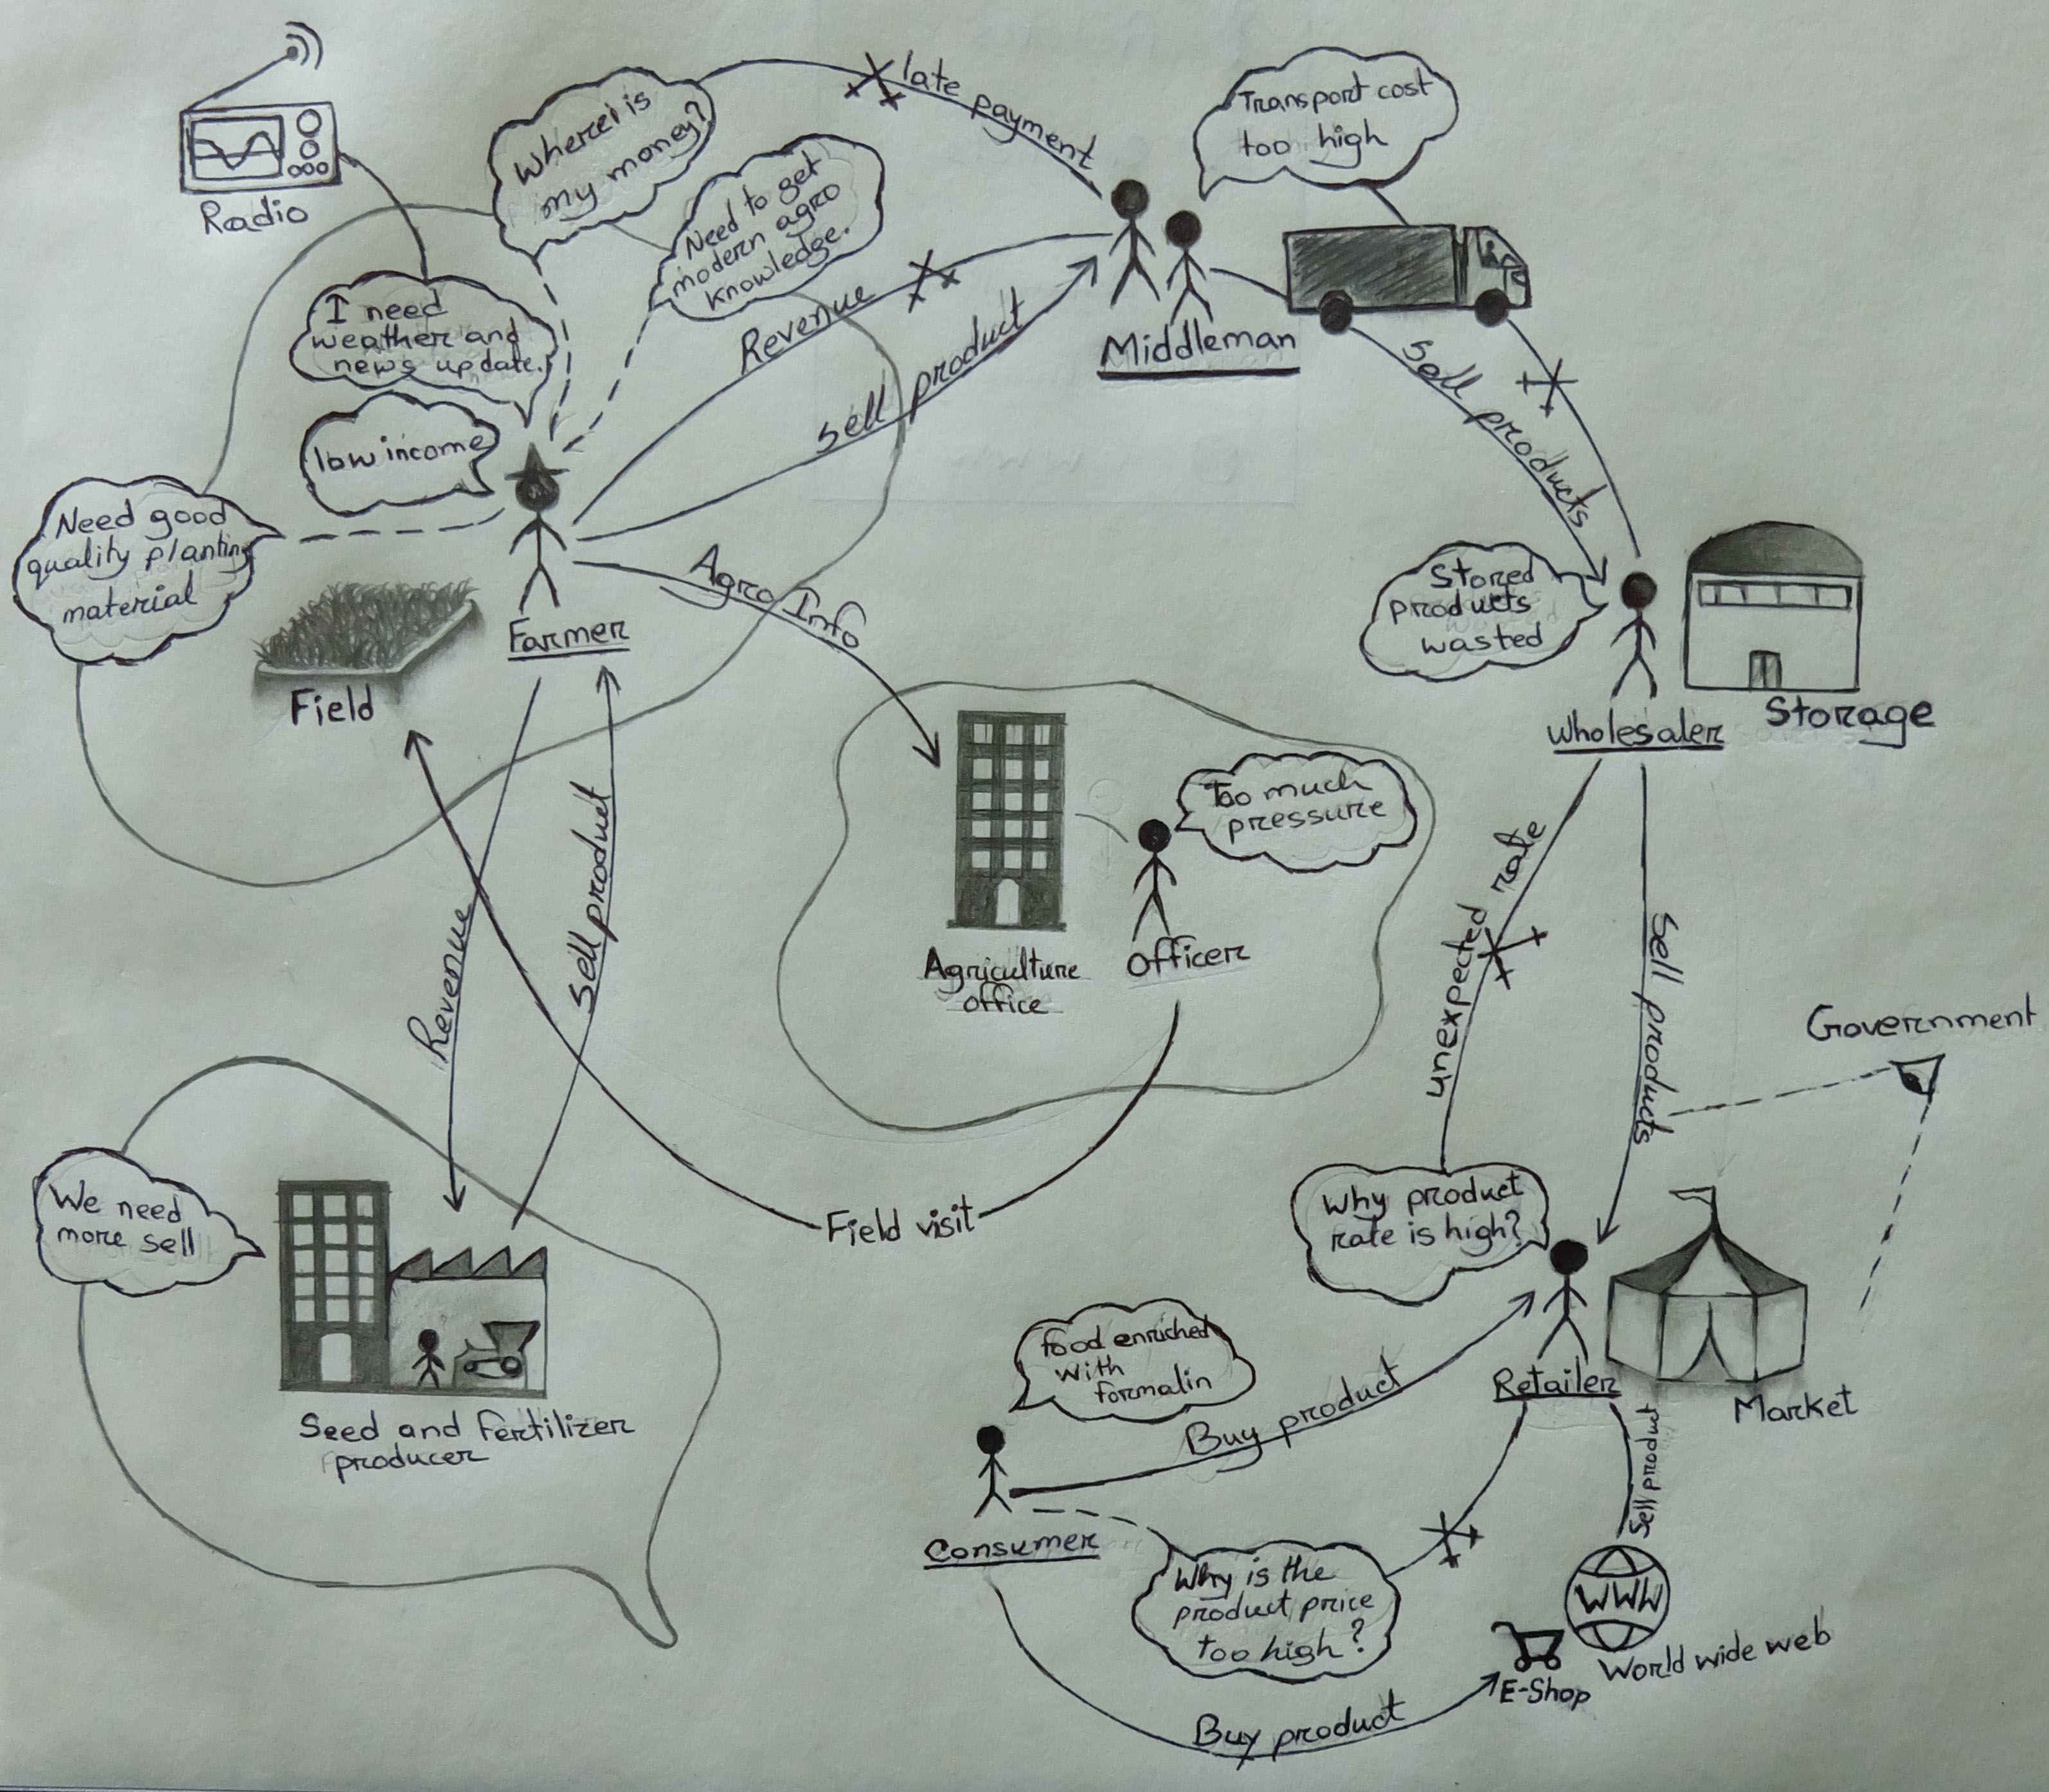 late payment
Transport cost
too high
Where is
my money?
Need to get
modern agro
knowledge.
Radio
I need
weather and
news update.
Revenue
sell product
Middleman
Sell products
low income
Need good
quality planting
material
Agro Info
Farmer
Field
Stored
products
wasted
Wholesaler
Storage
Too much
pressure
Agriculture
office
Officer
Revenue
Sell product
unexpected rate
Sell products
Government
Field visit
We need
more sell
Why product
rate is high?
Seed and fertilizer
producer
food enriched
with
formalin
Buy product
Retailer
Market
Sell product
Consumer
Why is the
product price
too high?
WWW
World wide web
E-Shop
Buy product